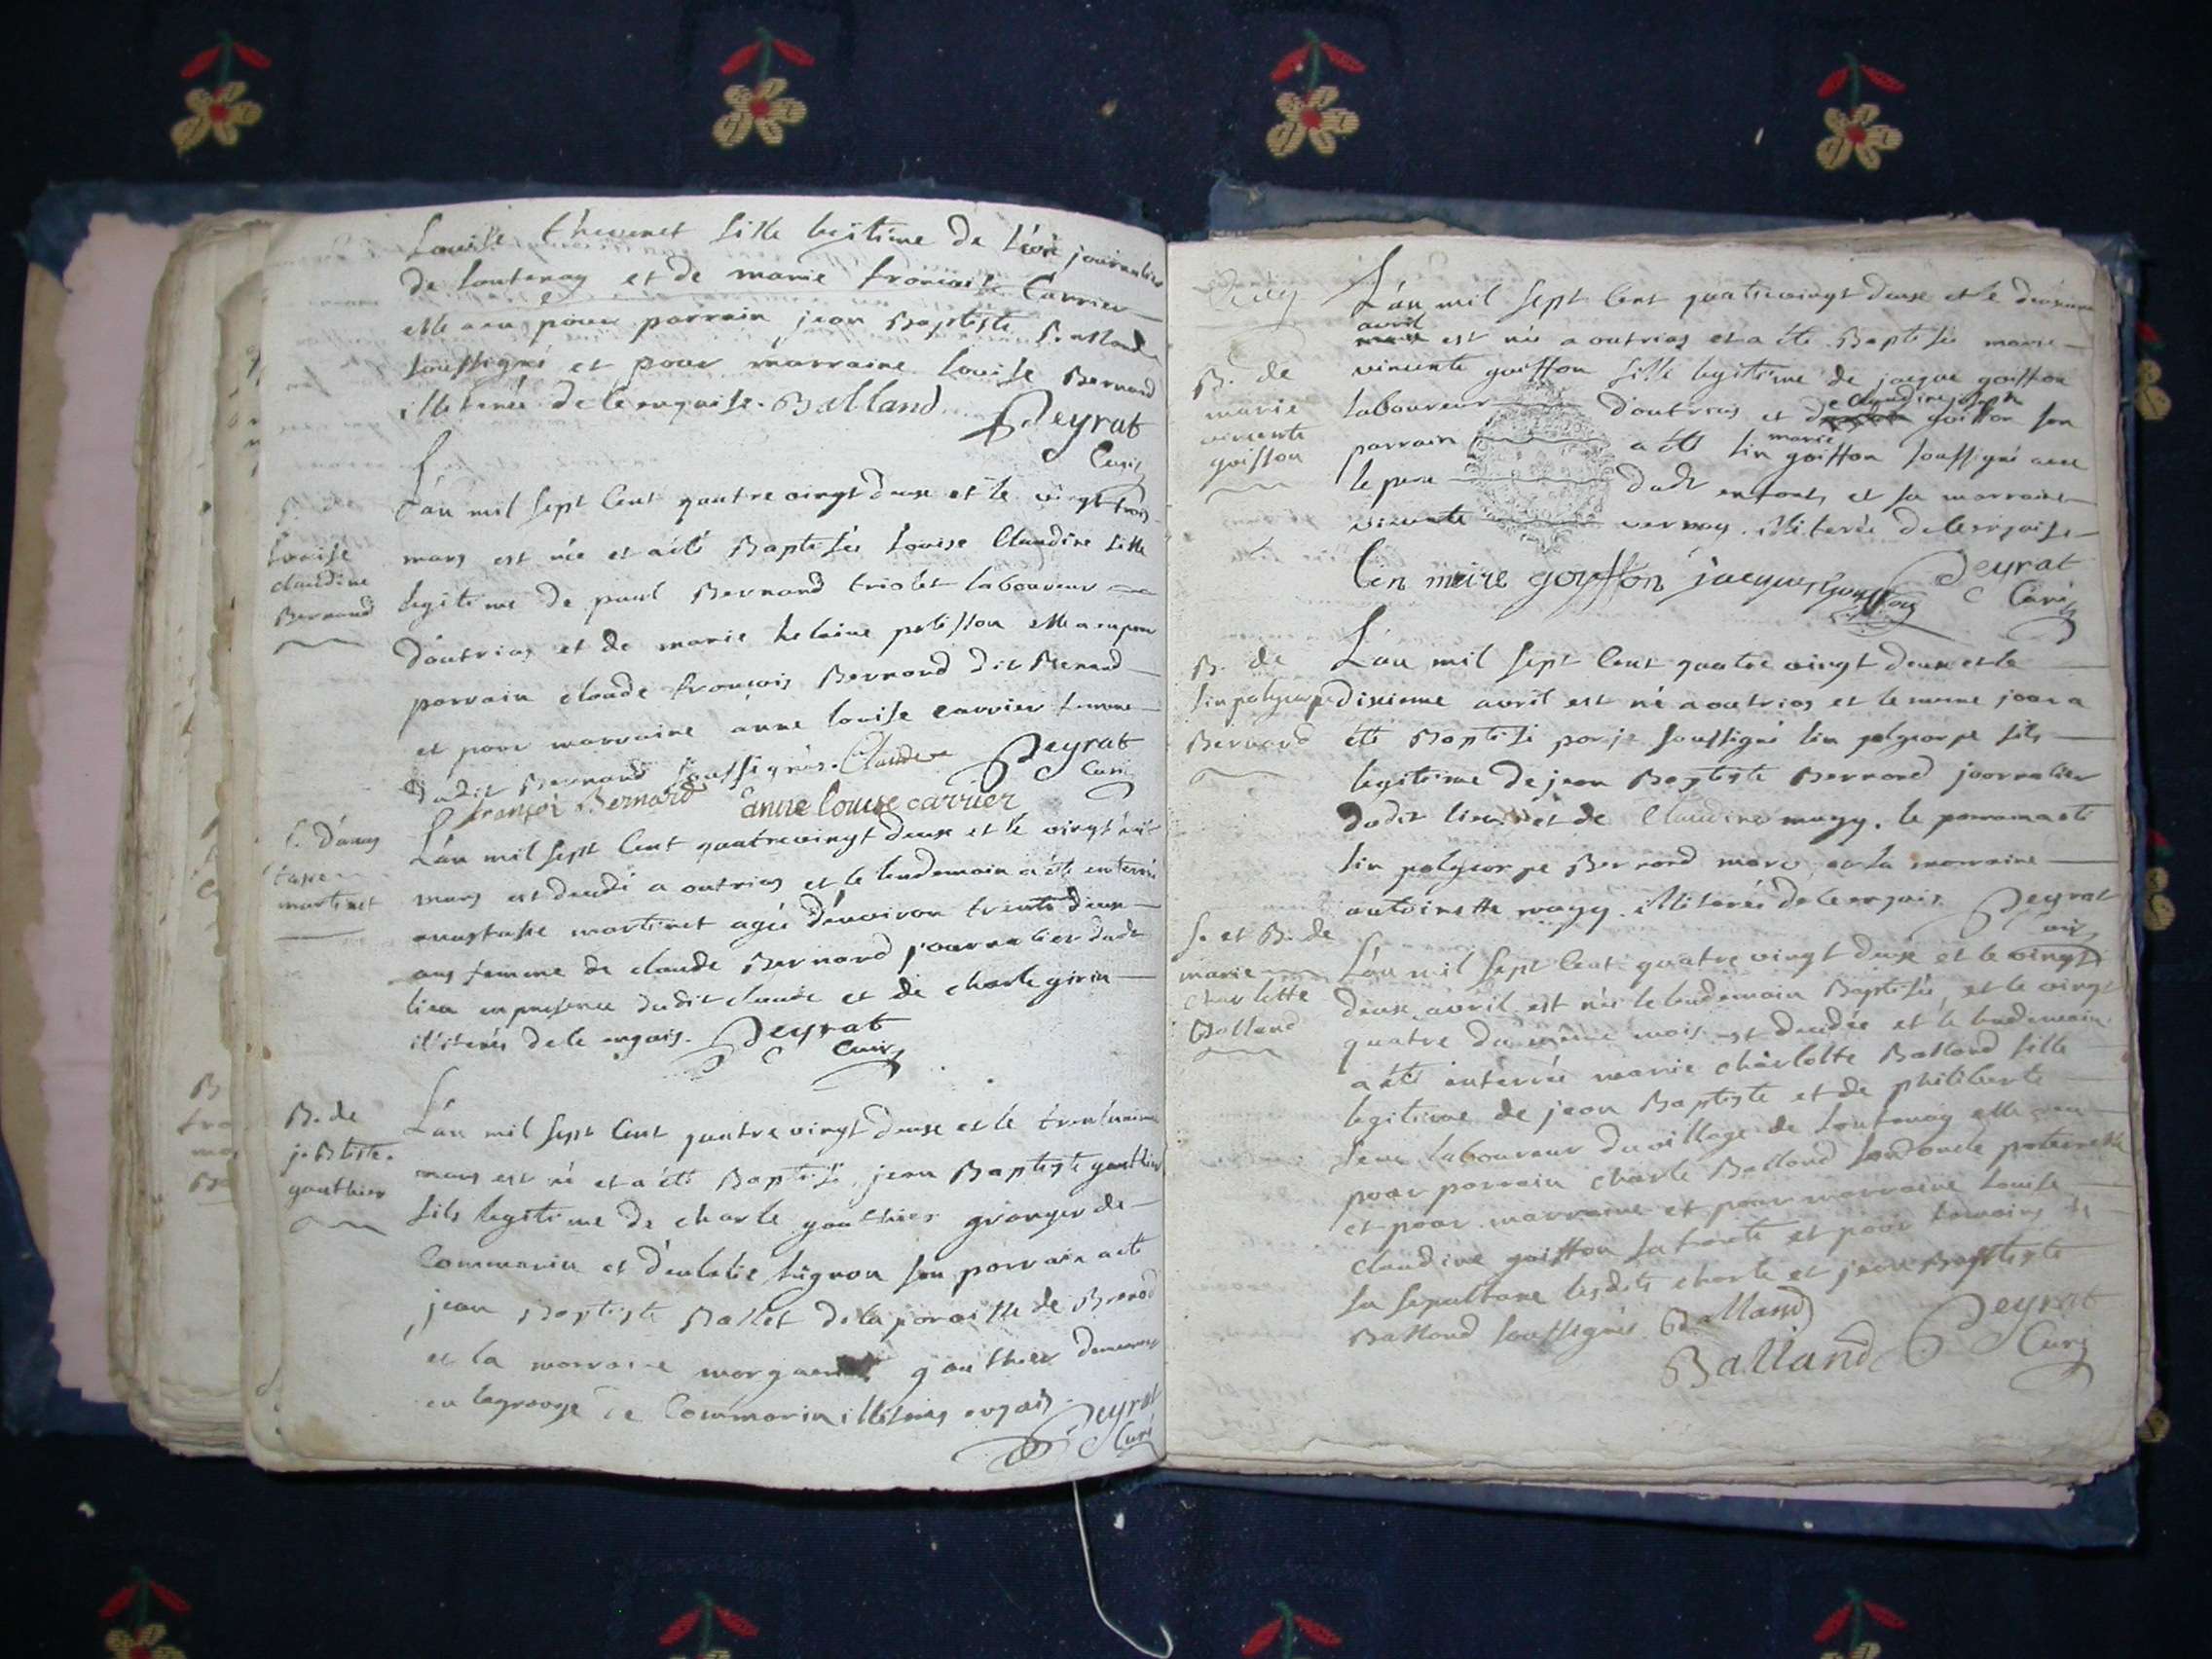 Louise thevenet fille legitime de Léon journalier
de fontenay et de marie françoise Carrier
elle a eu pour parrain jean Baptiste Balland
soussigné et pour marraine louise Bernard
illiterée de ce enquise. Balland Peyrat
Curé
B. de
louise
claudine
Bernard
L'an mil sept Cent quatre vingt deux et le vingt trois
mars est née et a été Baptisée Louise Claudine fille
legitime de paul Bernard triolet laboureur
d'outriaz et de marie helaine petisson elle a eu pour
parrain claude françois Bernard dit Benard
et pour marraine anne louise carrier femme
dudit Bernard soussignés. Claude Peyrat
françoi Bernard anne louise carrier Curé
S. d'anas
tasie
martinet
L'an mil sept Cent quatrevingt deux et le vingt huit
mars est decedé a outriaz et le lendemain a été enterré
anastasie martinet agée d'environ trente deux
ans femme de claude Bernard journalier dudit
lieu en presence dudit claude et de charle girin
illiterés de ce enquis. Peyrat
Curé
B. de
j. Btiste
gauthier
L'an mil sept Cent quatre vingt deux et le trentunieme
mars est né et a été Baptisé jean Baptiste gauthier
fils legitime de charle gauthier granger de
Commarin et d'eulalie hugnon son parrain a été
jean Baptiste Ballet de la paroisse de Brenod
et la marraine marguerite gauthier demeurant
en la grange de Commarin illiterés enquis.
Peyrat
Curé
L'an mil sept Cent quatrevingt deux et le deuxieme
avril
est née a outriaz et a été Baptisée marie
B. de
marie
vincente
goiffon
vincente goiffon fille legitime de jacque goiffon
laboureur d'outriaz et de claudine goiffon son
parrain a été lin marie goiffon soussigné avec
le pere dudit enfant, et sa marraine
vincente vernay. illiterée de ce enquise
lin meire goyffon jacques goiffon Peyrat
Curé
B. de
lin polycarpe
Bernard
L'an mil sept Cent quatre vingt deux et le
dixieme avril est né a outriaz et le meme jour a
été Baptisé par je soussigné lin polycarpe fils
legitime de jean Baptiste Bernard journalier
dudit lieu et de Claudine magy. le parrain a été
lin polycarpe Bernard marc et la marraine
antoinette magy. illiterés de ce enquis Peyrat
Curé
S. et B. de
marie
charlotte
Balland
L'an mil sept Cent quatre vingt deux et le vingt
deux avril est née le lendemain Baptisée, et le vingt
quatre du même mois est decedée et le lendemain
a été enterrée marie charlotte Balland fille
legitime de jean Baptiste et de philiberte
laboureur du village de fontenay elle a eu
pour parrain charle Balland son oncle paternelle
et pour marraine et pour marraine Louise
claudine goiffon sa tante et pour temoins de
sa sepulture lesdits charle et jean Baptiste
Balland soussignés Balland Peyrat
Balland Curé